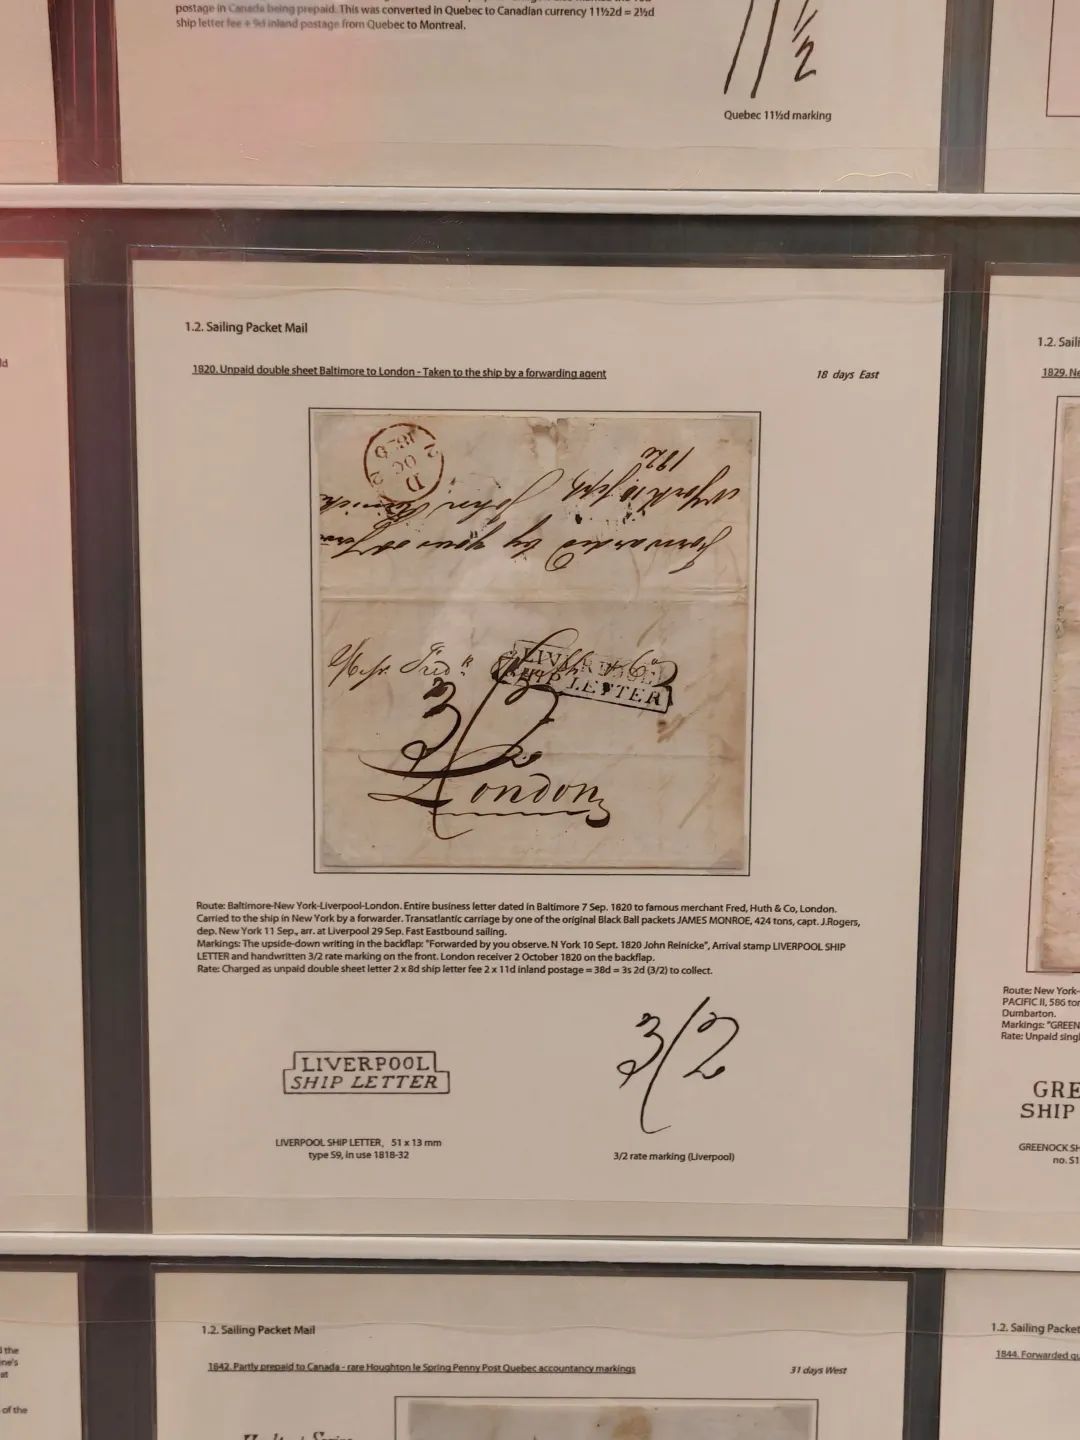 postage in Canada being prepaid. This was converted in Quebec to Canadian currency 11½2d = 2½d
ship letter fee + 9d inland postage from Quebec to Montreal.
11½
Quebec 11½d marking
1.2. Sailing Packet Mail
1820. Unpaid double sheet Baltimore to London - Taken to the ship by a forwarding agent
18 days East
D
OC
2 2
1820
Forwarded by your
NYork 10 Sept. John Reinicke
1820
Messrs. Fredk. Huth & Co
LIVERPOOL
SHIP LETTER
3/2
London
Route: Baltimore-New York-Liverpool-London. Entire business letter dated in Baltimore 7 Sep. 1820 to famous merchant Fred, Huth & Co, London.
Carried to the ship in New York by a forwarder. Transatlantic carriage by one of the original Black Ball packets JAMES MONROE, 424 tons, capt. J.Rogers,
dep. New York 11 Sep., arr. at Liverpool 29 Sep. Fast Eastbound sailing.
Markings: The upside-down writing in the backflap: "Forwarded by you observe. N York 10 Sept. 1820 John Reinicke", Arrival stamp LIVERPOOL SHIP
LETTER and handwritten 3/2 rate marking on the front. London receiver 2 October 1820 on the backflap.
Rate: Charged as unpaid double sheet letter 2 x 8d ship letter fee 2 x 11d inland postage = 38d = 3s 2d (3/2) to collect.
LIVERPOOL
SHIP LETTER
LIVERPOOL SHIP LETTER, 51 x 13 mm
type S9, in use 1818-32
3/2
3/2 rate marking (Liverpool)
1.2. Saili
1829. Ne
Route: New York-
PACIFIC II, 586 ton
Dumbarton.
Markings: "GREEN
Rate: Unpaid singl
GRE
SHIP
GREENOCK SH
no. S1
1.2. Sailing Packet Mail
1842. Partly prepaid to Canada - rare Houghton le Spring Penny Post Quebec accountancy markings
31 days West
1.2. Sailing Packet
1844. Forwarded qu
d the
ne's
at
of the